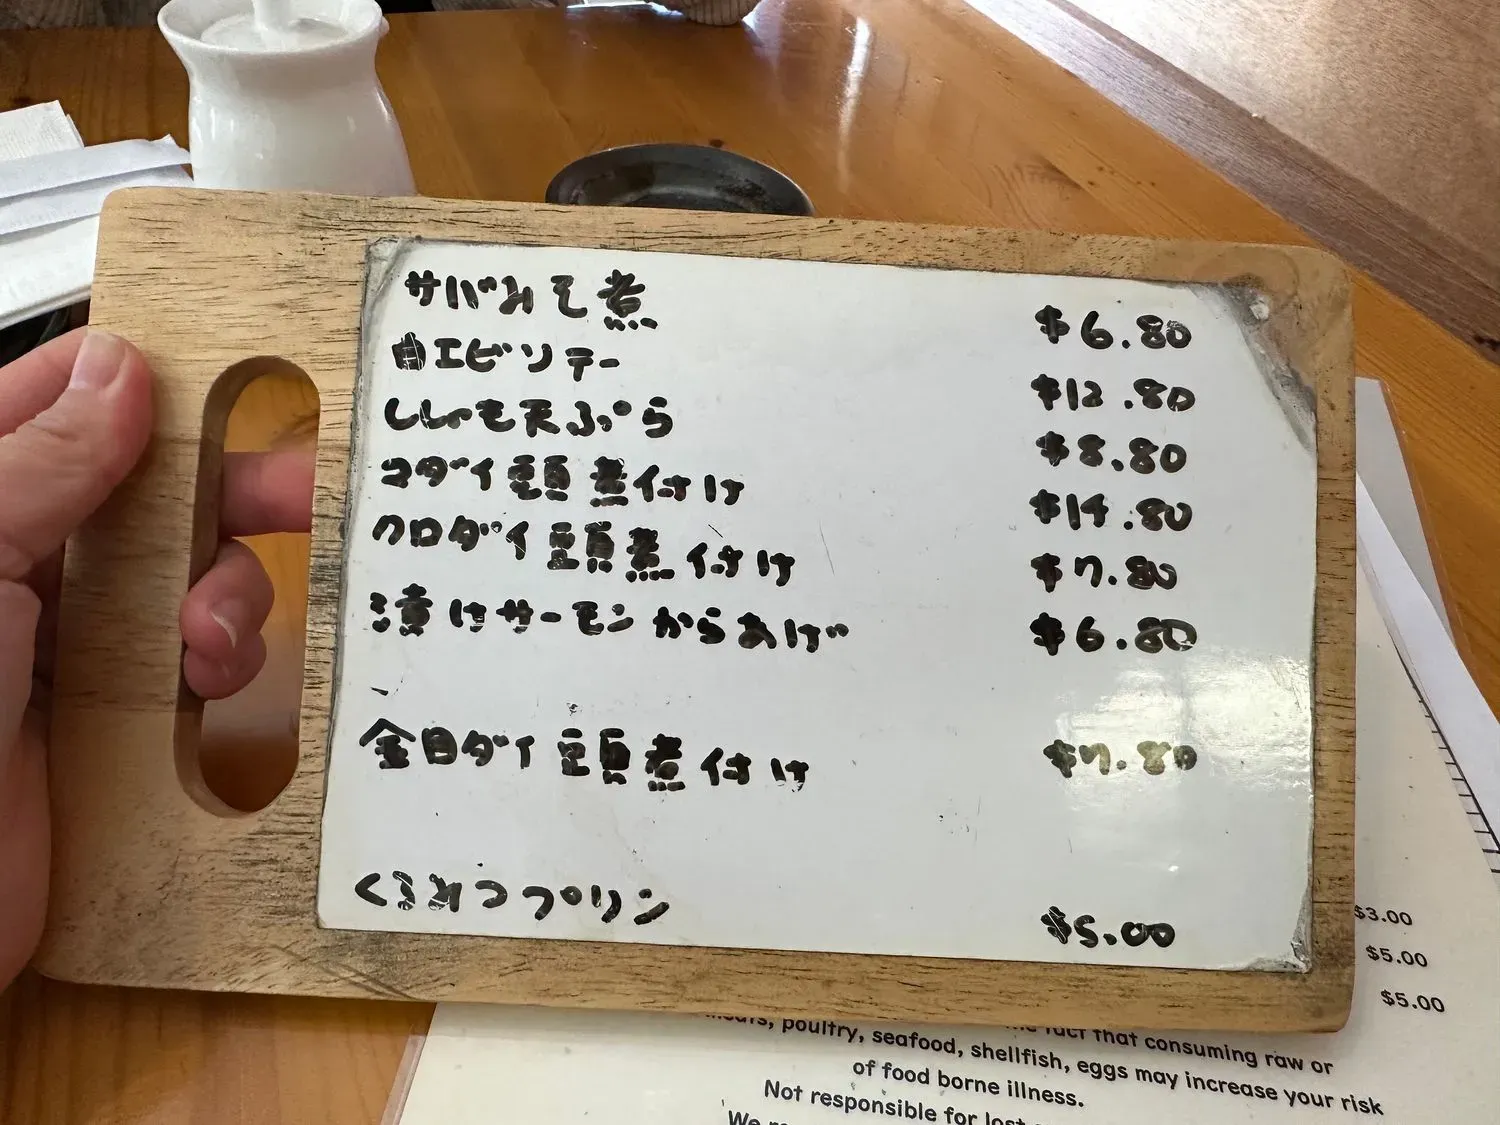 サバみそ煮 $6.80
白エビソテー $12.80
ししゃも天ぷら $8.80
コダイ頭煮付け $14.80
クロダイ頭煮付け $7.80
漬けサーモンからあげ $6.80
金目ダイ頭煮付け $7.80
くるみつプリン $5.00
$3.00
$5.00
$5.00
fact that consuming raw or
poultry, seafood, shellfish, eggs may increase your risk
of food borne illness.
Not responsible for lost
We